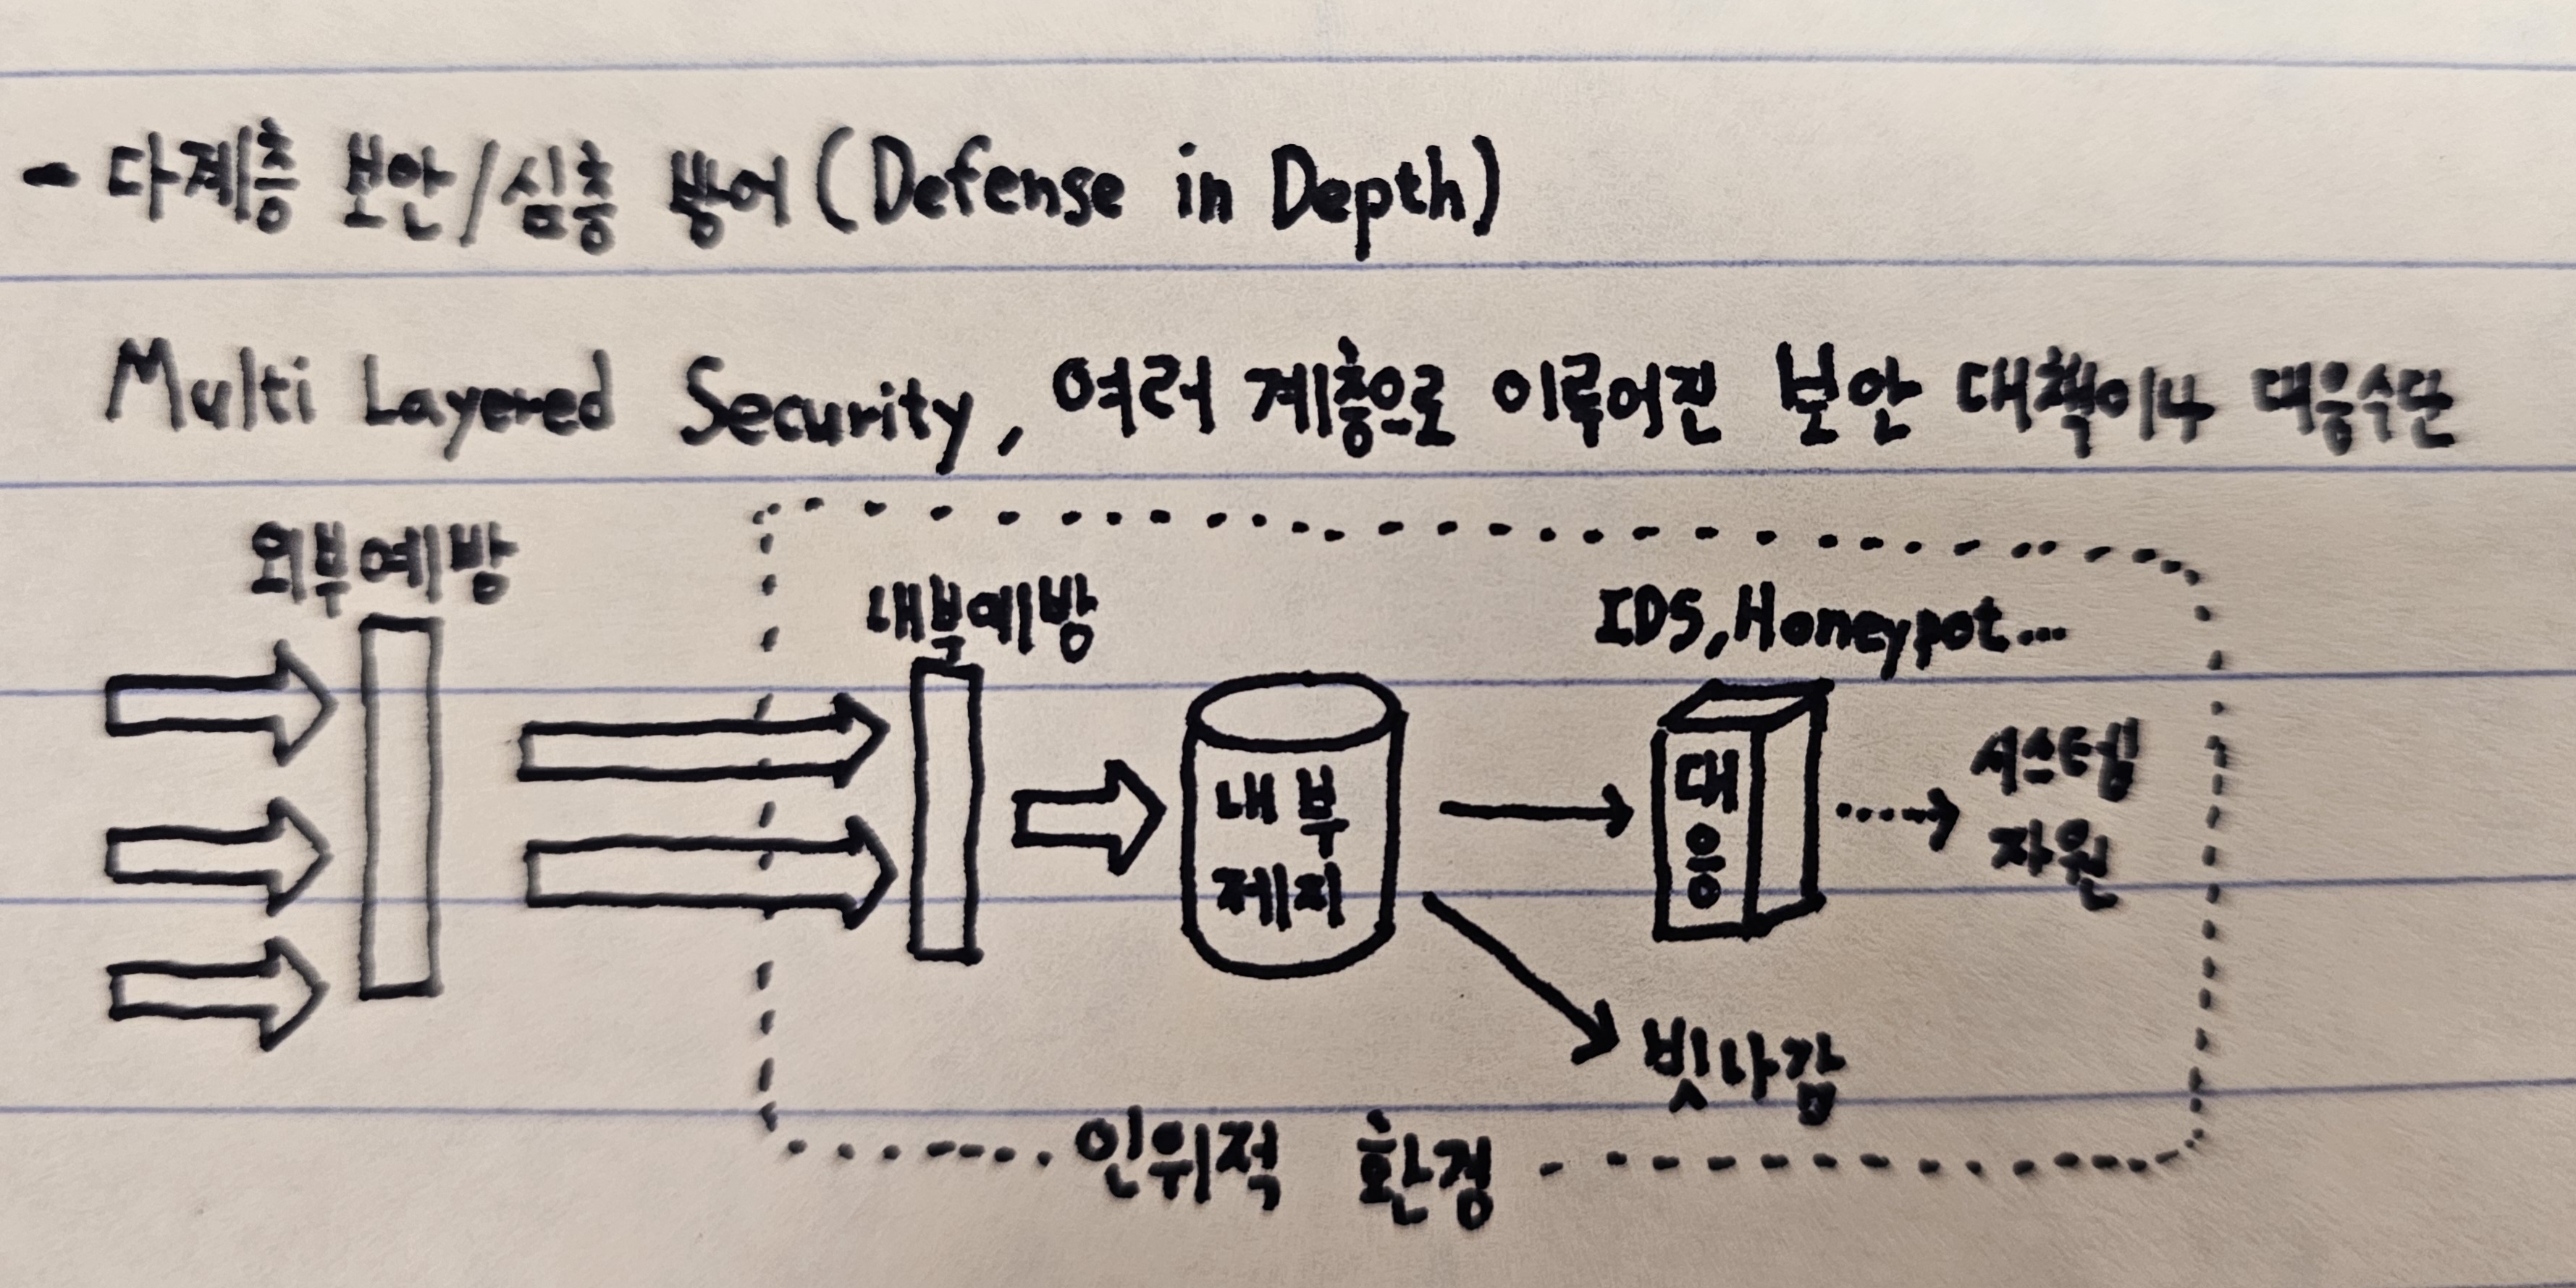 - 다계층 보안/심층 방어(Defense in Depth)
Multi Layered Security, 여러 계층으로 이루어진 보안 대책이나 대응수단
외부예방
내부예방
IDS, Honeypot...
내부
제지
대
응
시스템
자원
빗나감
인위적 환경